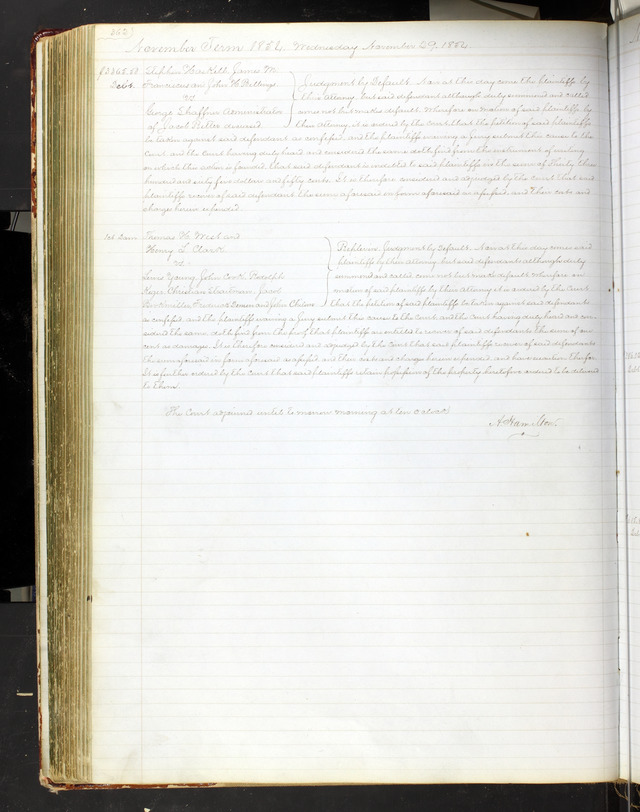 362)
November Term 1854. Wednesday November 29, 1854.
Stephen Haskell James M.
Debt. Franciscus and John H. Billings
vs
George Shaffner Administrator
of Jacob deceased
Judgment by Default. Now at this day come the plaintiffs by
their attorney, but said defendant although duly summoned and called
comes not but makes default. Wherefore on motion of said plaintiffs by
their attorney, it is ordered by the court that the petition of said plaintiffs
be taken against said defendant as confessed, and the plaintiffs waiving a Jury submit this cause to the
Court and the Court having duly heard and considered the same doth find from the instrument of writing
on which this action is founded, that said defendant is indebted to said plaintiffs in the sum of Thirty three
hundred and sixty five dollars and fifty cents. It is therefore considered and adjudged by the Court that said
plaintiffs recover of said defendant the sum aforesaid in form aforesaid as confessed, and their costs and
charges herein expended.
1ct Dam. Thomas H. West and
Henry L. Clark
vs
Louis Young John Cook Rudolph
Christian Jacob
and John
Replevin. Judgment by Default. Now at this day comes said
plaintiffs by their attorney, but said defendants although duly
summoned and called, come not but make default. Wherefore on
motion of said plaintiffs by their attorney it is ordered by the Court
that the petition of said plaintiffs be taken against said defendants
as confessed, and the plaintiffs waiving a Jury submit this cause to the Court, and the Court having duly heard and con-
sidered the same, doth find from the proof that plaintiffs are entitled to recover of said defendants the sum of one
cent as damages. It is therefore considered and adjudged by the Court that said plaintiffs recover of said defendants
the sum aforesaid in form aforesaid as confessed and their costs and charges herein expended, and have execution therefor.
It is further ordered by the Court that said plaintiffs retain possession of the property heretofore ordered to be delivered
to them.
The Court adjourned until to morrow morning at ten o'clock.
A Hamilton